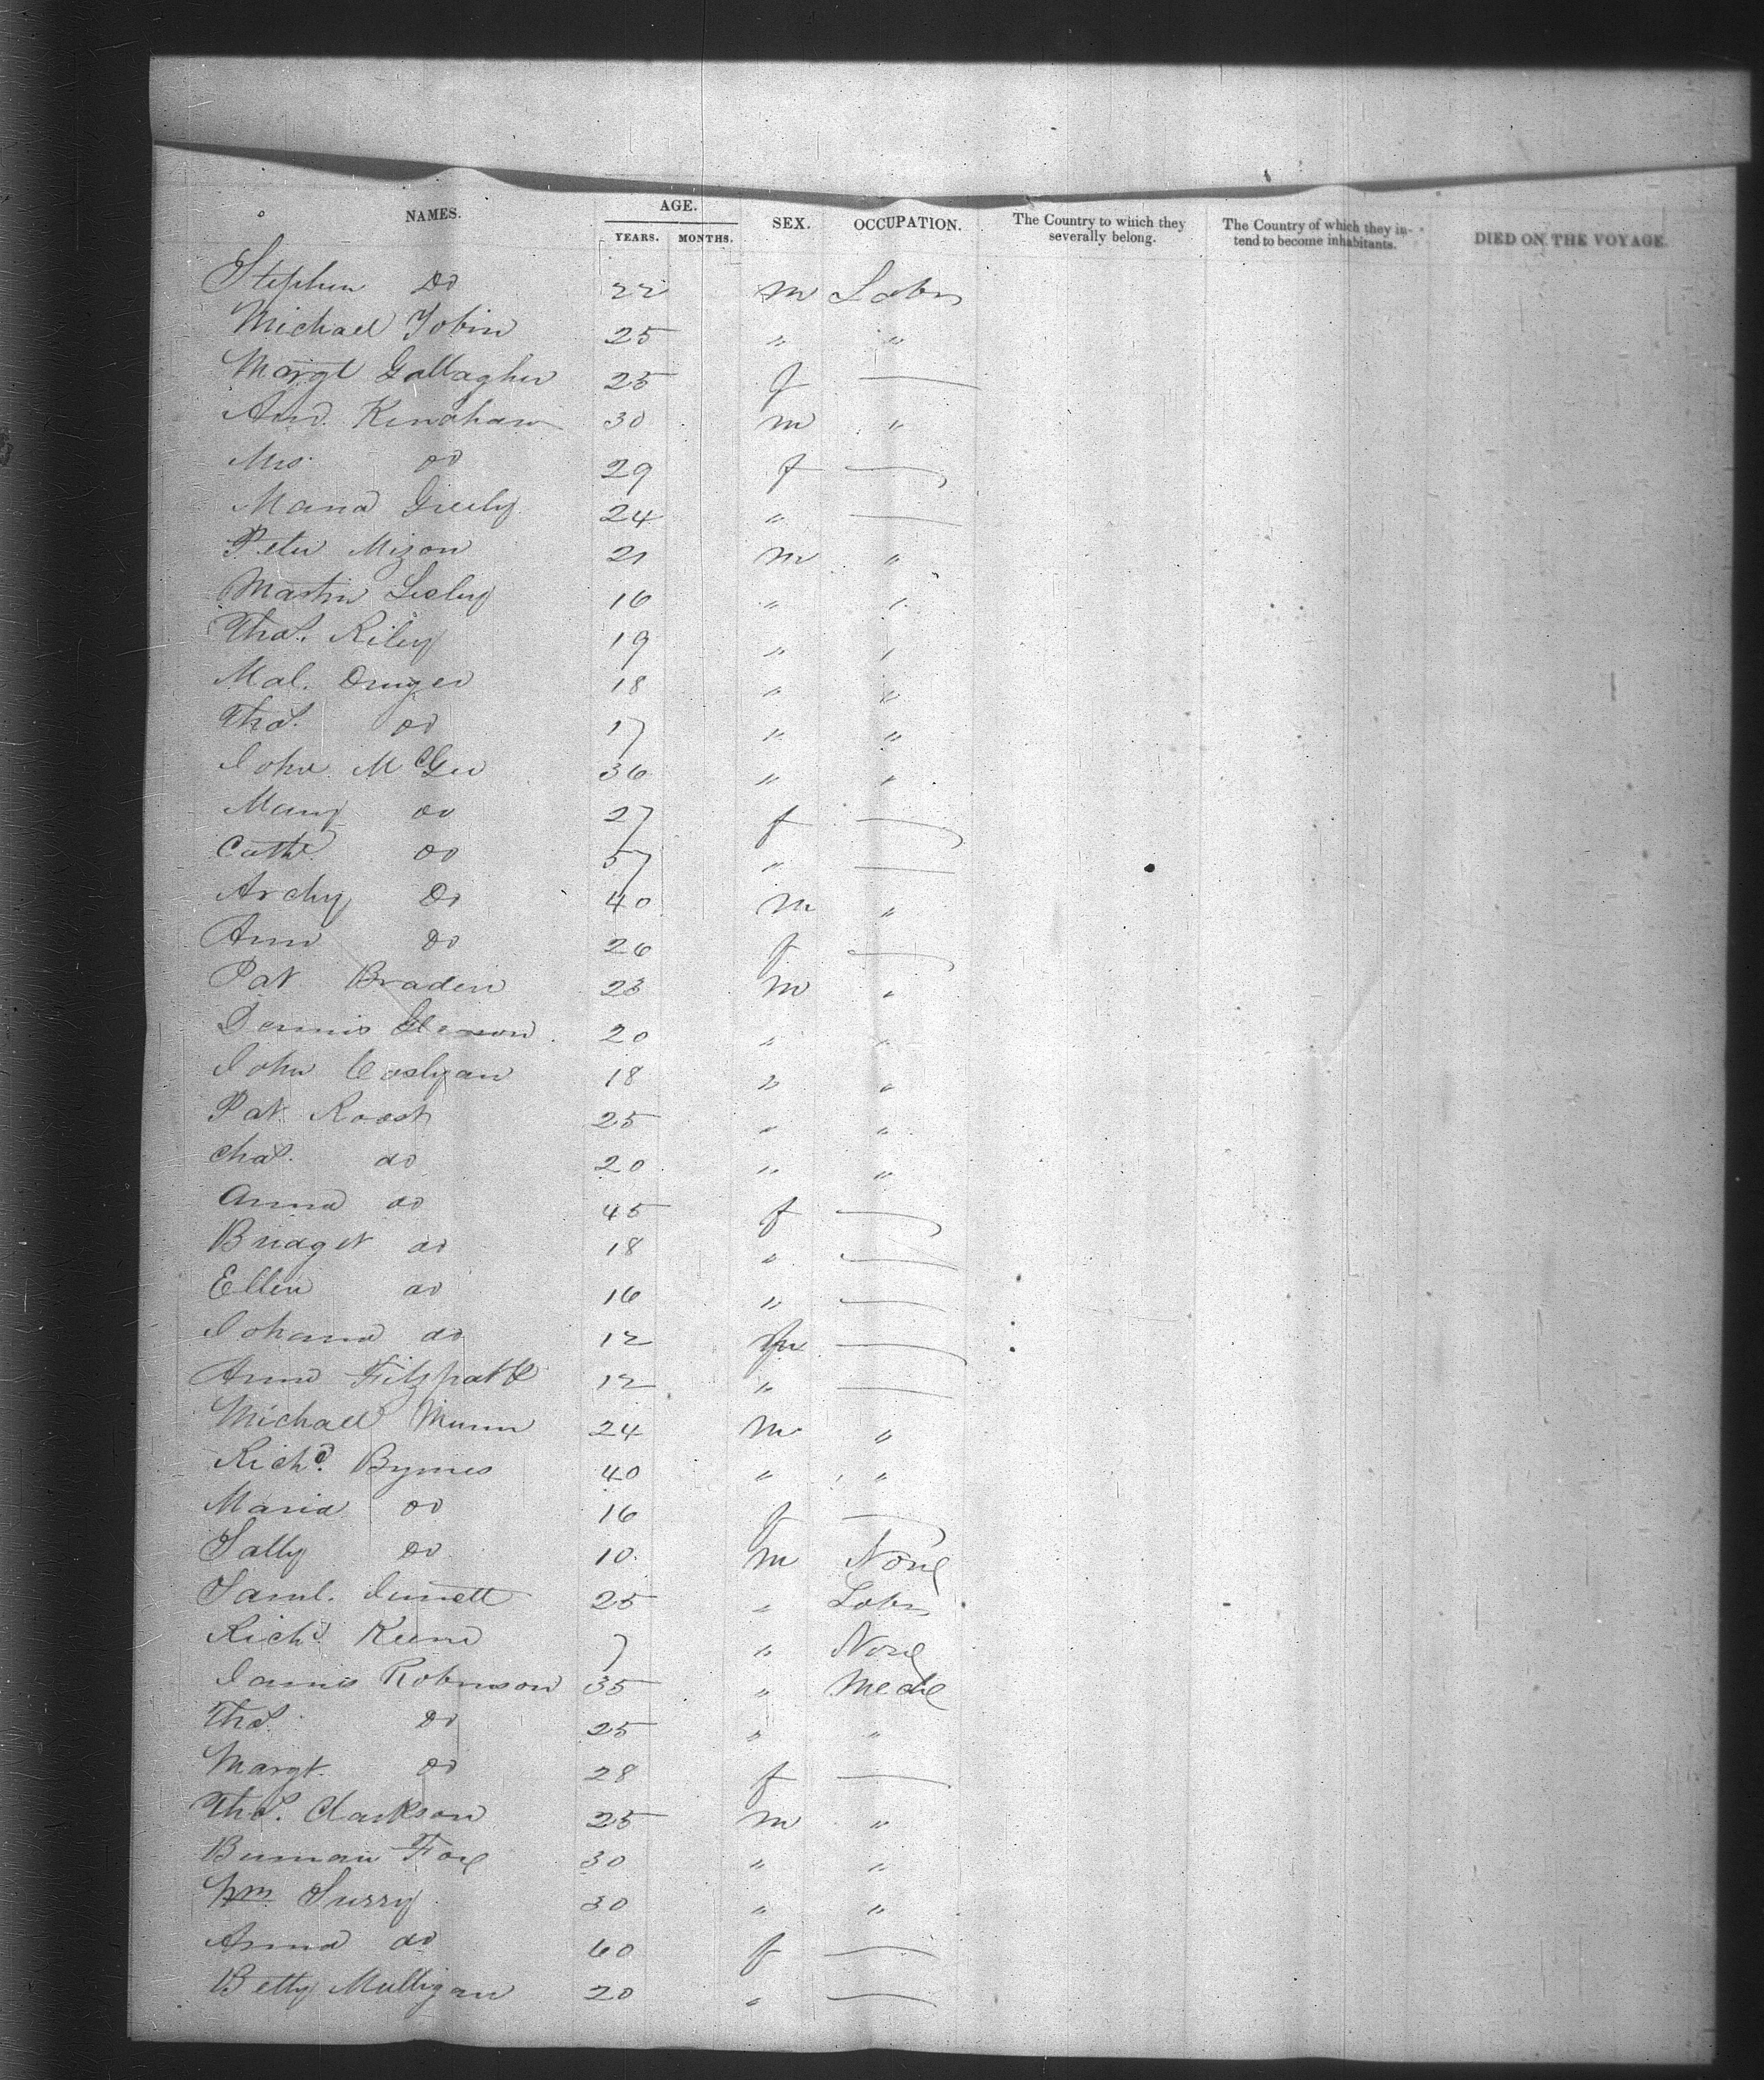 NAMES. AGE. SEX. OCCUPATION. The Country to which they severally belong. The Country of which they intend to become inhabitants. DIED ON THE VOYAGE.
YEARS. MONTHS.
Stephen Do 22 m Labr
Michael Tobin 25 " "
Margt Gallagher 25 f —
And. Kenahan 30 m "
Mrs. do 29 f —
Maria Greely 24 " —
Peter Mizon 21 m "
Martin Lesley 16 " "
Thos. Riley 19 " "
Mal. 18 " "
Thos. do 17 " "
John McGee 36 " "
Mary do 27 f —
Cathe do 57 " —
Archy Do 40 m "
Ann Do 26 f —
Pat Braden 23 m "
Dennis Gleeson 20 " "
John Costigan 18 " "
Pat Roach 25 " "
Chas. do 20 " "
Anna do 45 f —
Bridget do 18 " —
Ellen do 16 " —
Johana do 12 f —
Anna Fitzpatk 12 " —
Michael Munn 24 m "
Richd. Byrnes 40 " "
Maria do 16 f —
Sally Do 10 m None
Saml. 25 " Labr
Richd. Keene 7 " None
James Robinson 35 " Mech
Thos. Do 25 " "
Margt. do 28 f —
Thos. Clarkson 25 m "
Fox 30 " "
Wm. Surry 30 " "
Anna do 60 f —
Betty Mulligan 20 " —